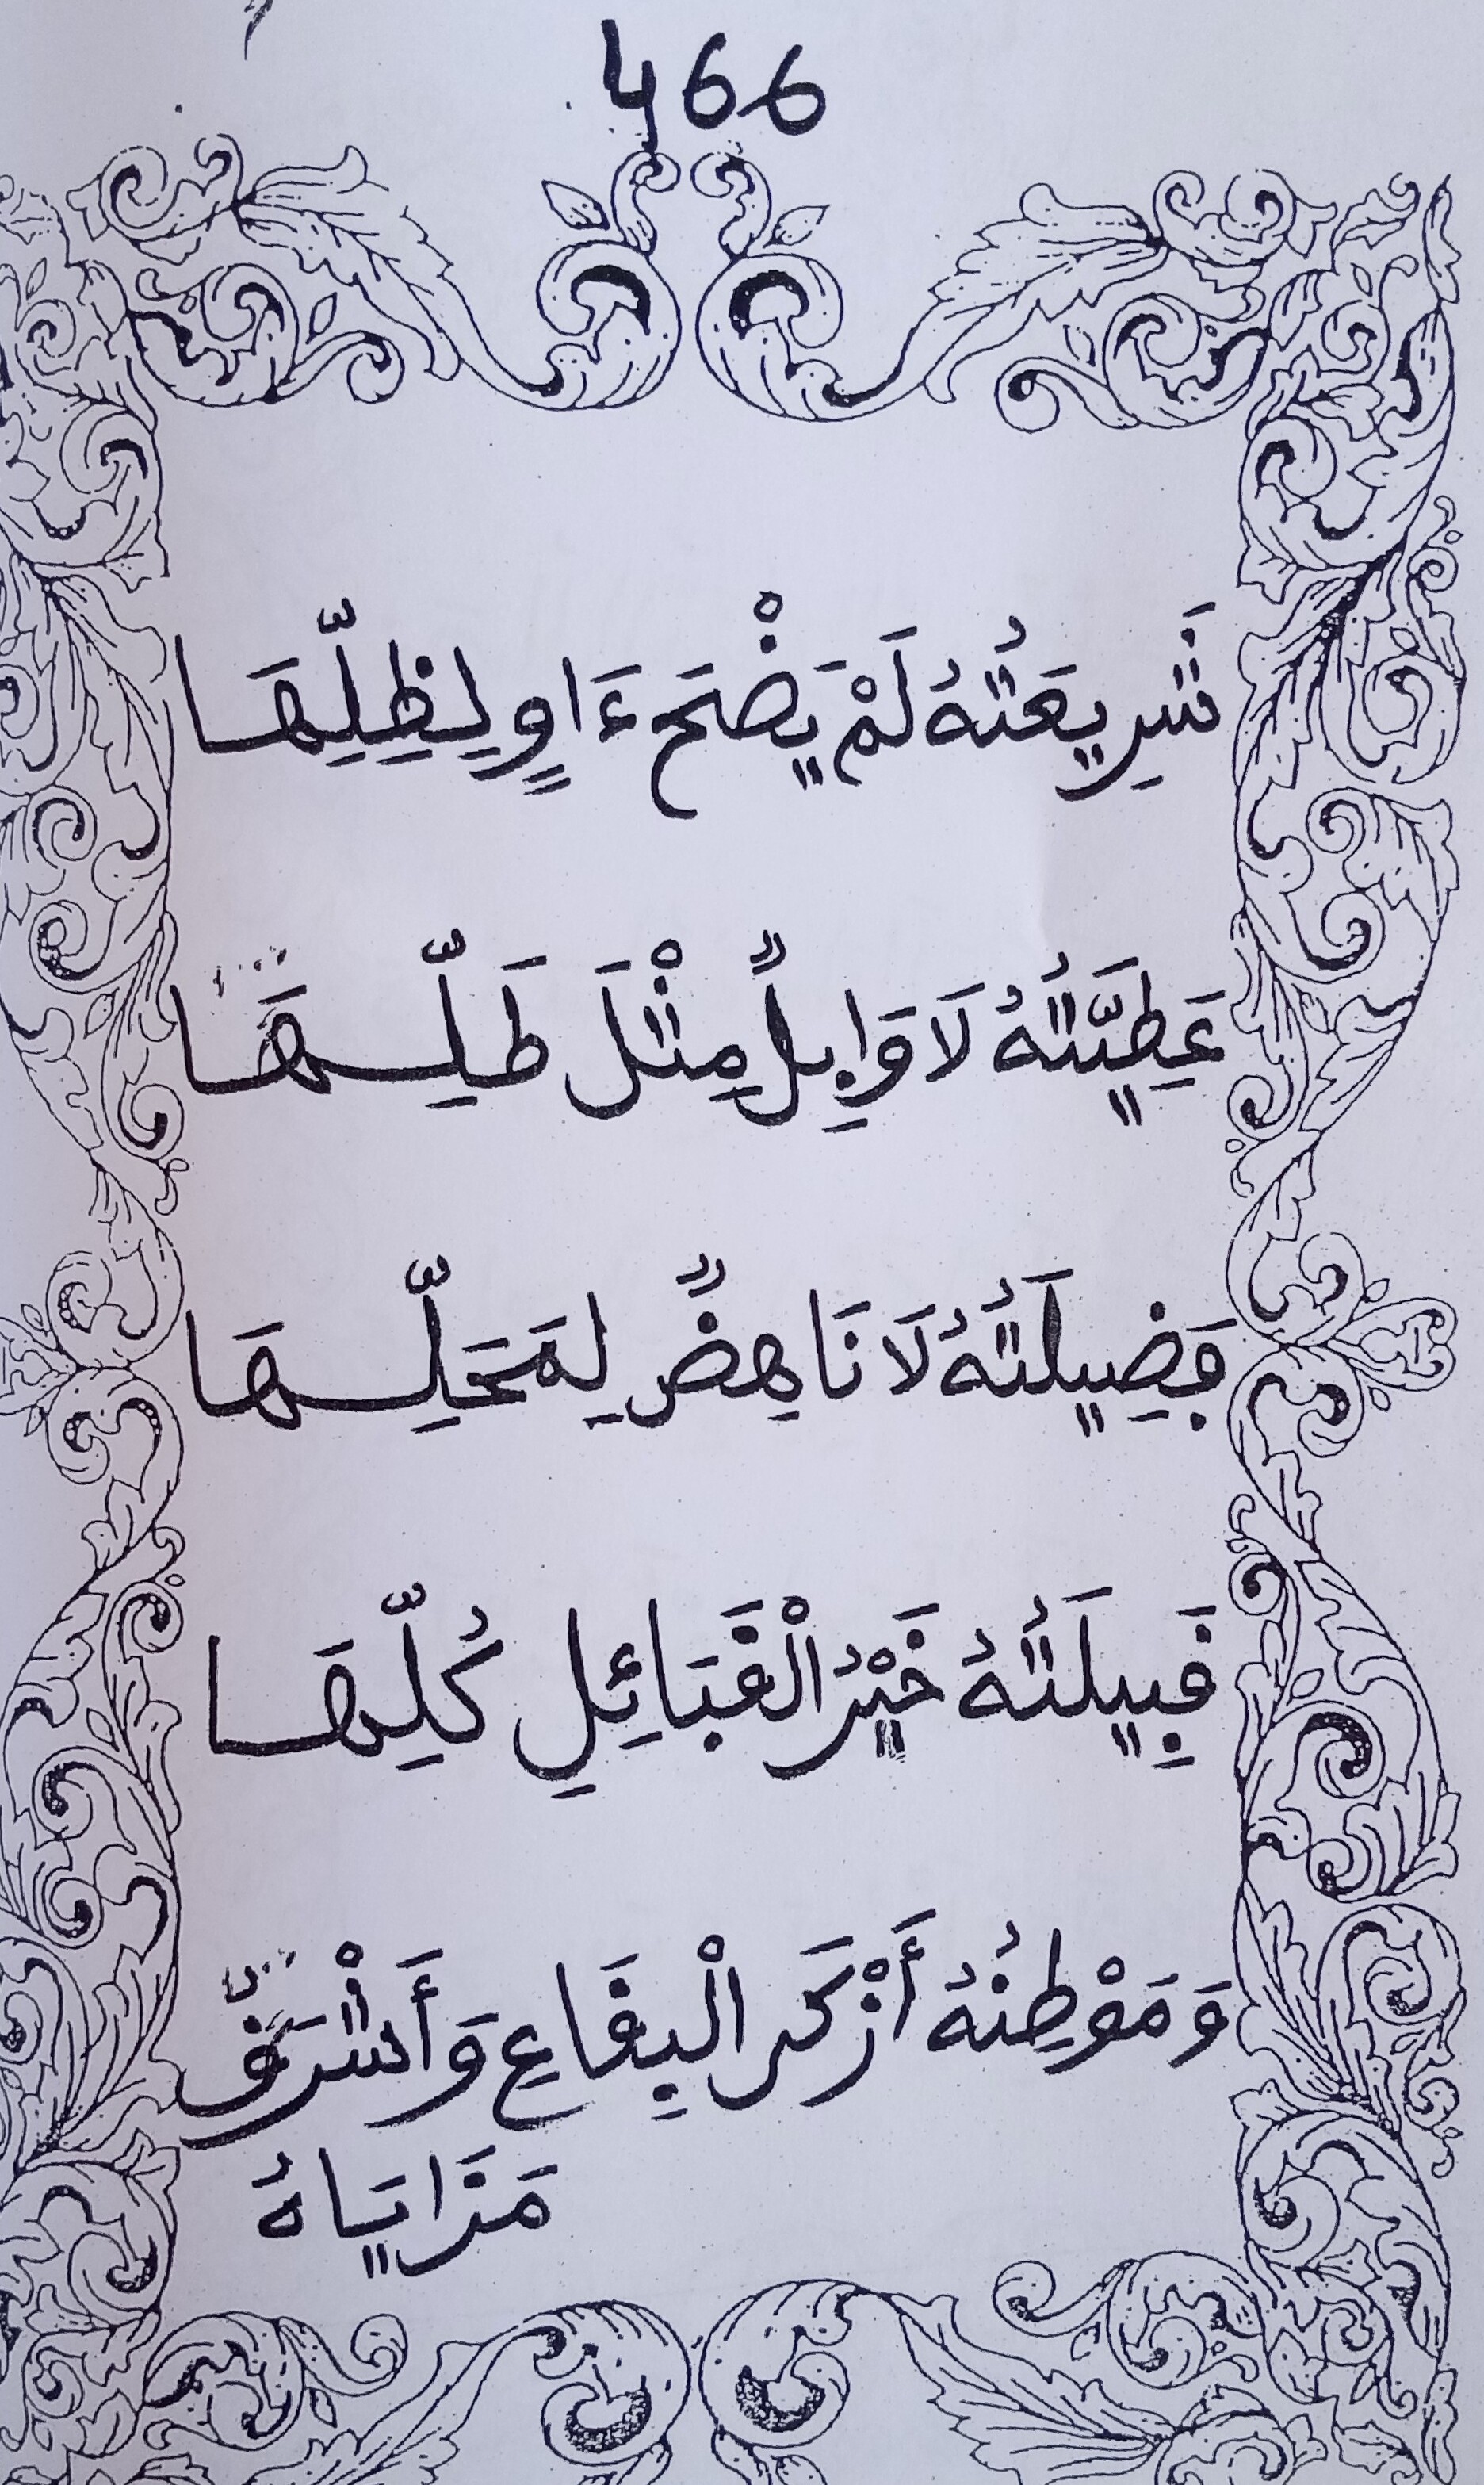 466
شَرِيعَتُهُ لَمْ يَضْحَ ءَاوٍ لِظِلِّهَا
عَطِيَّتُهُ لَا وَابِلٌ مِثْلَ طَلِّهَا
فَضِيلَتُهُ لَا نَاهِضٌ لِمَحَلِّهَا
قَبِيلَتُهُ خَيْرُ الْقَبَائِلِ كُلِّهَا
وَمَوْطِنُهُ أَزْكَى الْبِقَاعِ وَأَشْرَفُ
مَزَايَاهُ